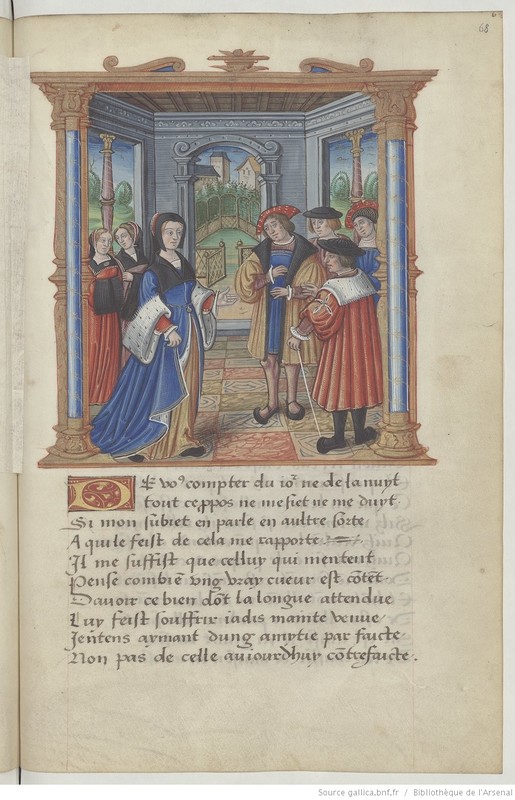 68
De vo⁹ compter du io² ne de la nuyt
tout ce ppos ne me siet ne me duyt.
Si mon subiet en parle en aultre sorte
A qui le feist de cela me rapporte
Il me suffist que celluy qui mentent
Pense combiē vng vray cueur est cōtēt
Dauoir ce bien dōt la longue attendue
Luy feist souffrir iadis mainte venue
Jentens aymant dung amytie par faicte
Non pas de celle auiourdhuy cōtrefaicte.
Source gallica.bnf.fr / Bibliothèque de l'Arsenal